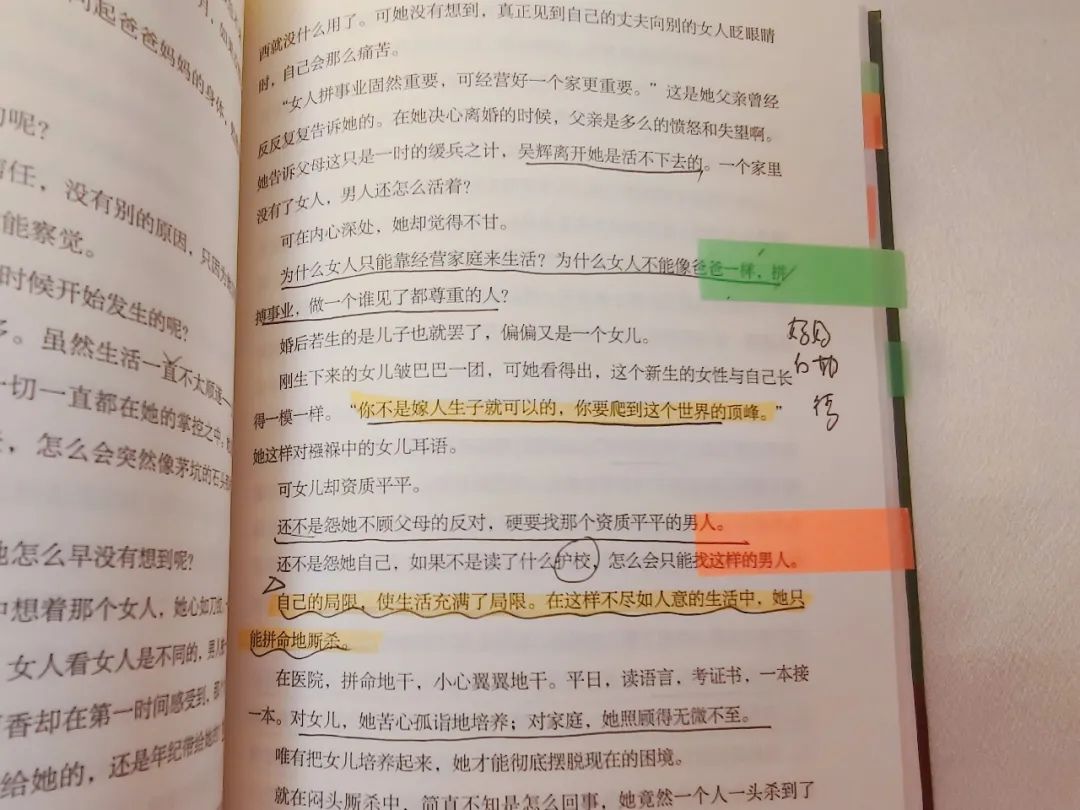 月，
问起爸爸妈妈的身体，
的呢？
信任，没有别的原因，只因为
能察觉。
时候开始发生的呢？
多。虽然生活一直不太顺遂
一切一直都在她的掌控之中，
，怎么会突然像茅坑的石头
她怎么早没有想到呢？
中想着那个女人，她心如刀
女人看女人是不同的，男人
香却在第一时间感受到，那
给她的，还是年纪带给她的
西就没什么用了。可她没有想到，真正见到自己的丈夫向别的女人眨眼睛
时，自己会那么痛苦。
“女人拼事业固然重要，可经营好一个家更重要。”这是她父亲曾经
反反复复告诉她的。在她决心离婚的时候，父亲是多么的愤怒和失望啊。
她告诉父母这只是一时的缓兵之计，吴辉离开她是活不下去的。一个家里
没有了女人，男人还怎么活着？
可在内心深处，她却觉得不甘。
为什么女人只能靠经营家庭来生活？为什么女人不能像爸爸一样，拼
搏事业，做一个谁见了都尊重的人？
婚后若生的是儿子也就罢了，偏偏又是一个女儿。
刚生下来的女儿皱巴巴一团，可她看得出，这个新生的女性与自己长
得一模一样。“你不是嫁人生子就可以的，你要爬到这个世界的顶峰。”
她这样对襁褓中的女儿耳语。
可女儿却资质平平。
还不是怨她不顾父母的反对，硬要找那个资质平平的男人。
还不是怨她自己，如果不是读了什么护校，怎么会只能找这样的男人。
自己的局限，使生活充满了局限。在这样不尽如人意的生活中，她只
能拼命地厮杀。
在医院，拼命地干，小心翼翼地干。平日，读语言，考证书，一本接
一本。对女儿，她苦心孤诣地培养；对家庭，她照顾得无微不至。
唯有把女儿培养起来，她才能彻底摆脱现在的困境。
就在闷头厮杀中，简直不知是怎么回事，她竟然一个人一头杀到了